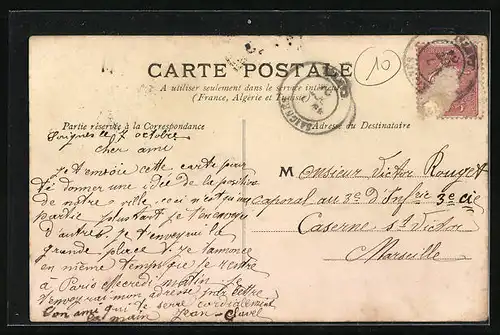 CARTE POSTALE
A utiliser seulement dans le service intérieur
(France, Algérie et Tunisie)
10
Partie réservée à la Correspondance
Adresse du Destinataire
le 7 octobre
cher ami
je t'envoie cette carte pour
te donner une idée de la position
de notre ville, ceci n'est qu'une
partie plus tard je t'en envoyer
d'autres, je t'envoyer la
grande place
en même temps que je rentre
à Paris mercredi matin je
t'enverrai mon adresse
ton ami qui te serre cordialement
la main Jean Clavel
Monsieur Victor Rouget
Caporal au 3e d'Inf 3e Cie
Caserne St Victor
Marseille